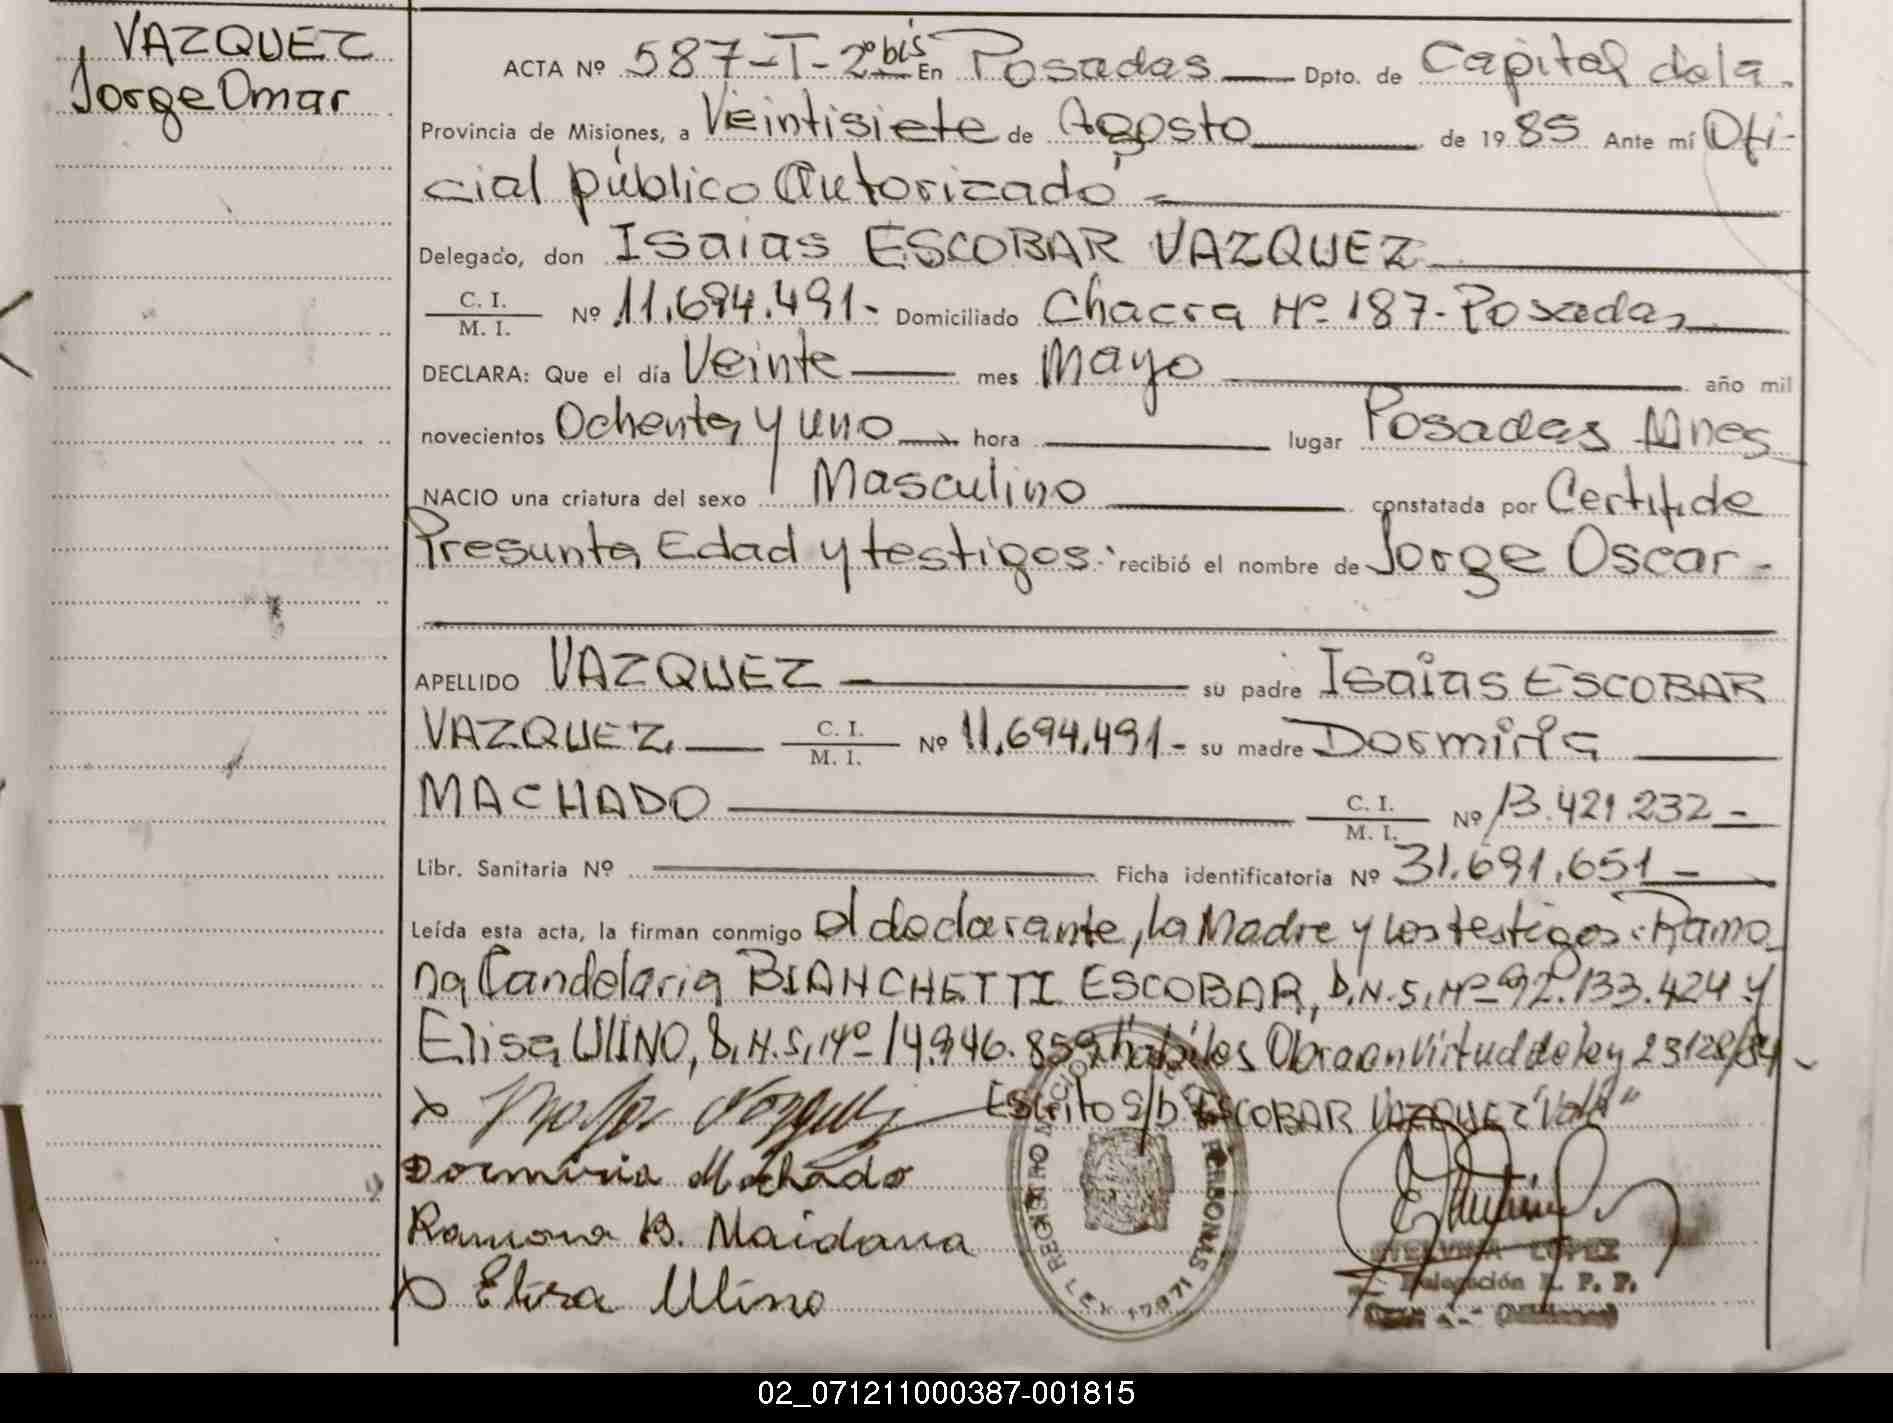 VAZQUEZ
Jorge Omar
ACTA Nº 587-T-2º bis En Posadas Dpto. de Capital de la
Provincia de Misiones, a Veintisiete de Agosto de 1985 Ante mí Ofi-
cial público Autorizado
Delegado, don Isaias ESCOBAR VAZQUEZ
C. I. / M. I. Nº 11.694.491- Domiciliado Chacra Nº 187- Posadas
DECLARA: Que el día Veinte mes Mayo año mil
novecientos Ochenta y uno hora lugar Posadas Mnes
NACIO una criatura del sexo Masculino constatada por Certif. de
Presunta Edad y testigos.- recibió el nombre de Jorge Oscar -
APELLIDO VAZQUEZ su padre Isaias ESCOBAR
VAZQUEZ. C. I. / M. I. Nº 11.694.491- su madre Dormiria
MACHADO C. I. / M. I. Nº 13.421.232-
Libr. Sanitaria Nº Ficha identificatoria Nº 31.691.651-
Leída esta acta, la firman conmigo el declarante, la Madre y los testigos: Ramo-
na Candelaria BIANCHETTI ESCOBAR, D.N.I. Nº 92.133.424 y
Elisa ULINO, D.N.I. Nº 14.946.859 hábiles Obra en Virtud de ley 23128/84-
Escrito s/b "ESCOBAR VAZQUEZ" Vale"
Dormiria Machado
Ramona B. Maidana
Elisa Ulino
LOPEZ
Delegación R. P. P.
02_071211000387-001815